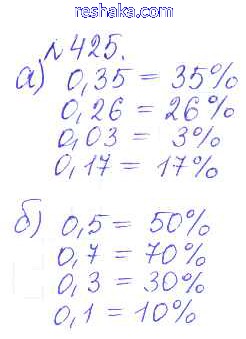 reshaka.com
№425.
а) 0,35 = 35%
0,26 = 26%
0,03 = 3%
0,17 = 17%
б) 0,5 = 50%
0,7 = 70%
0,3 = 30%
0,1 = 10%